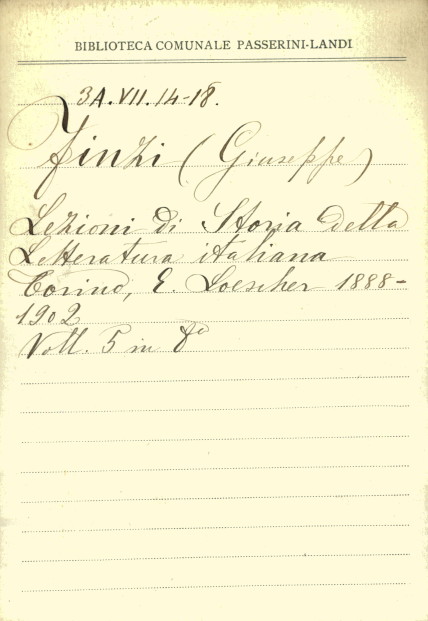 BIBLIOTECA COMUNALE PASSERINI-LANDI
3A.VII.14-18.
Finzi (Giuseppe)
Lezioni di Storia della
Letteratura italiana
Torino, E. Loescher 1888-
1902
Voll. 5 in 8º